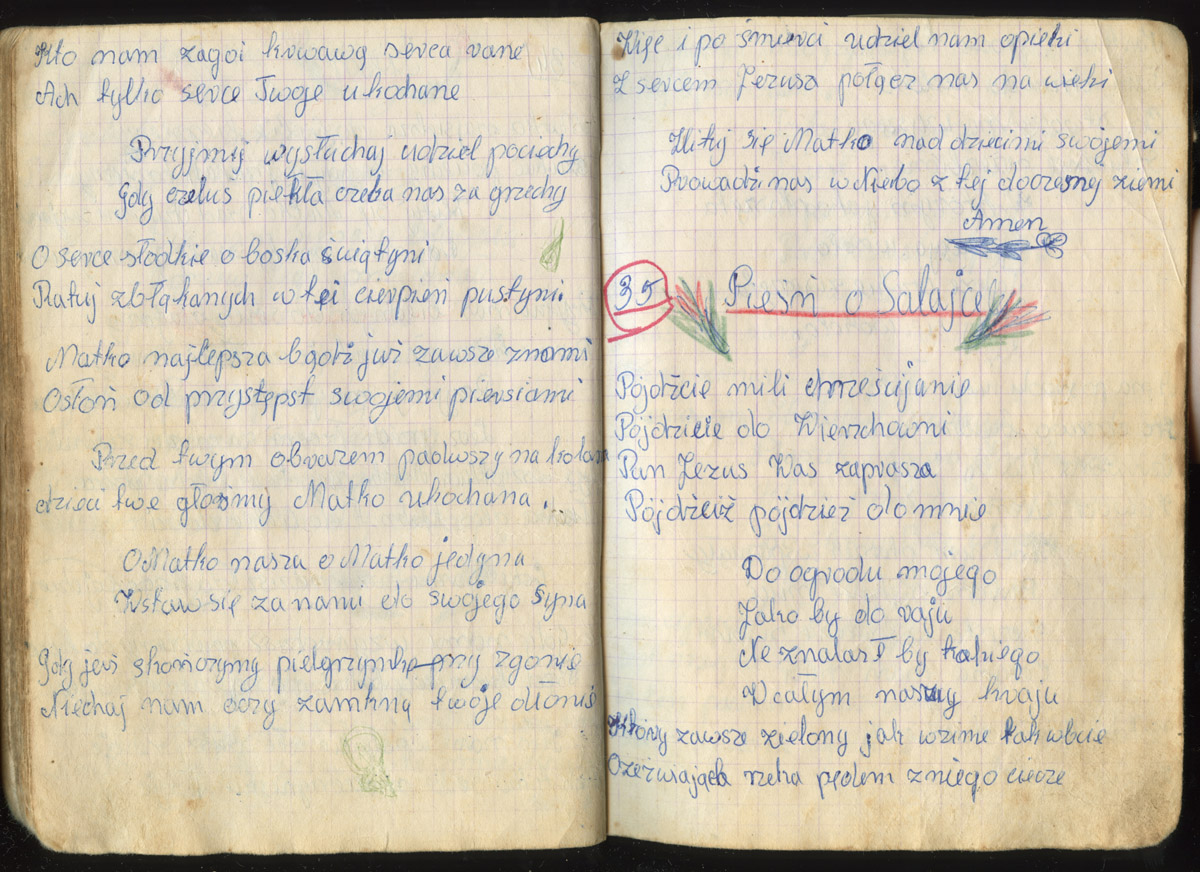 Kto nam zagoi krwawą serca rane
Ach tylko serce Twoje ukochane
Przyjmij wysłuchaj udziel pociechy
Gdy czelus piekła czeka nas za grzechy
O serce słodkie o boska świątyni
Ratuj zbłąkanych w tej cierpień pustyni.
Matko najlepsza bądź już zawsze znami
Osłoń od przystępst swojemi piersiami
Przed twym obrazem padwszy na kolana
dzieci twe głosimy Matko ukochana...
O Matko nasza o Matko jedyna
Wstaw się za nami do swojego syna
Gdy jeś skończymy pielgrzymkę przy zgonie
Niechaj nam oczy zamkną twoje dłonie
Więc i po śmierci udziel nam opieki
Z sercem Jezusa połącz nas na wieki
Lituj się Matko nad dziecimi swojemi
Prowadź nas w Niebo z tej doczesnej ziemi
Amen
35 Pieśń o Salajce
Pójdźcie mili chrześcijanie
Pójdziecie do Wierzchowni
Pan Jezus Was zaprasza
Pójdźciż pójdzież do mnie
Do ogrodu mojego
Jako by do raju
Ne znalasł by takiego
W całym naszmy kraju
Który zawsze zielony jak wzime tak wlecie
Ozeźwiająca rzeka pędem zniego ciecze